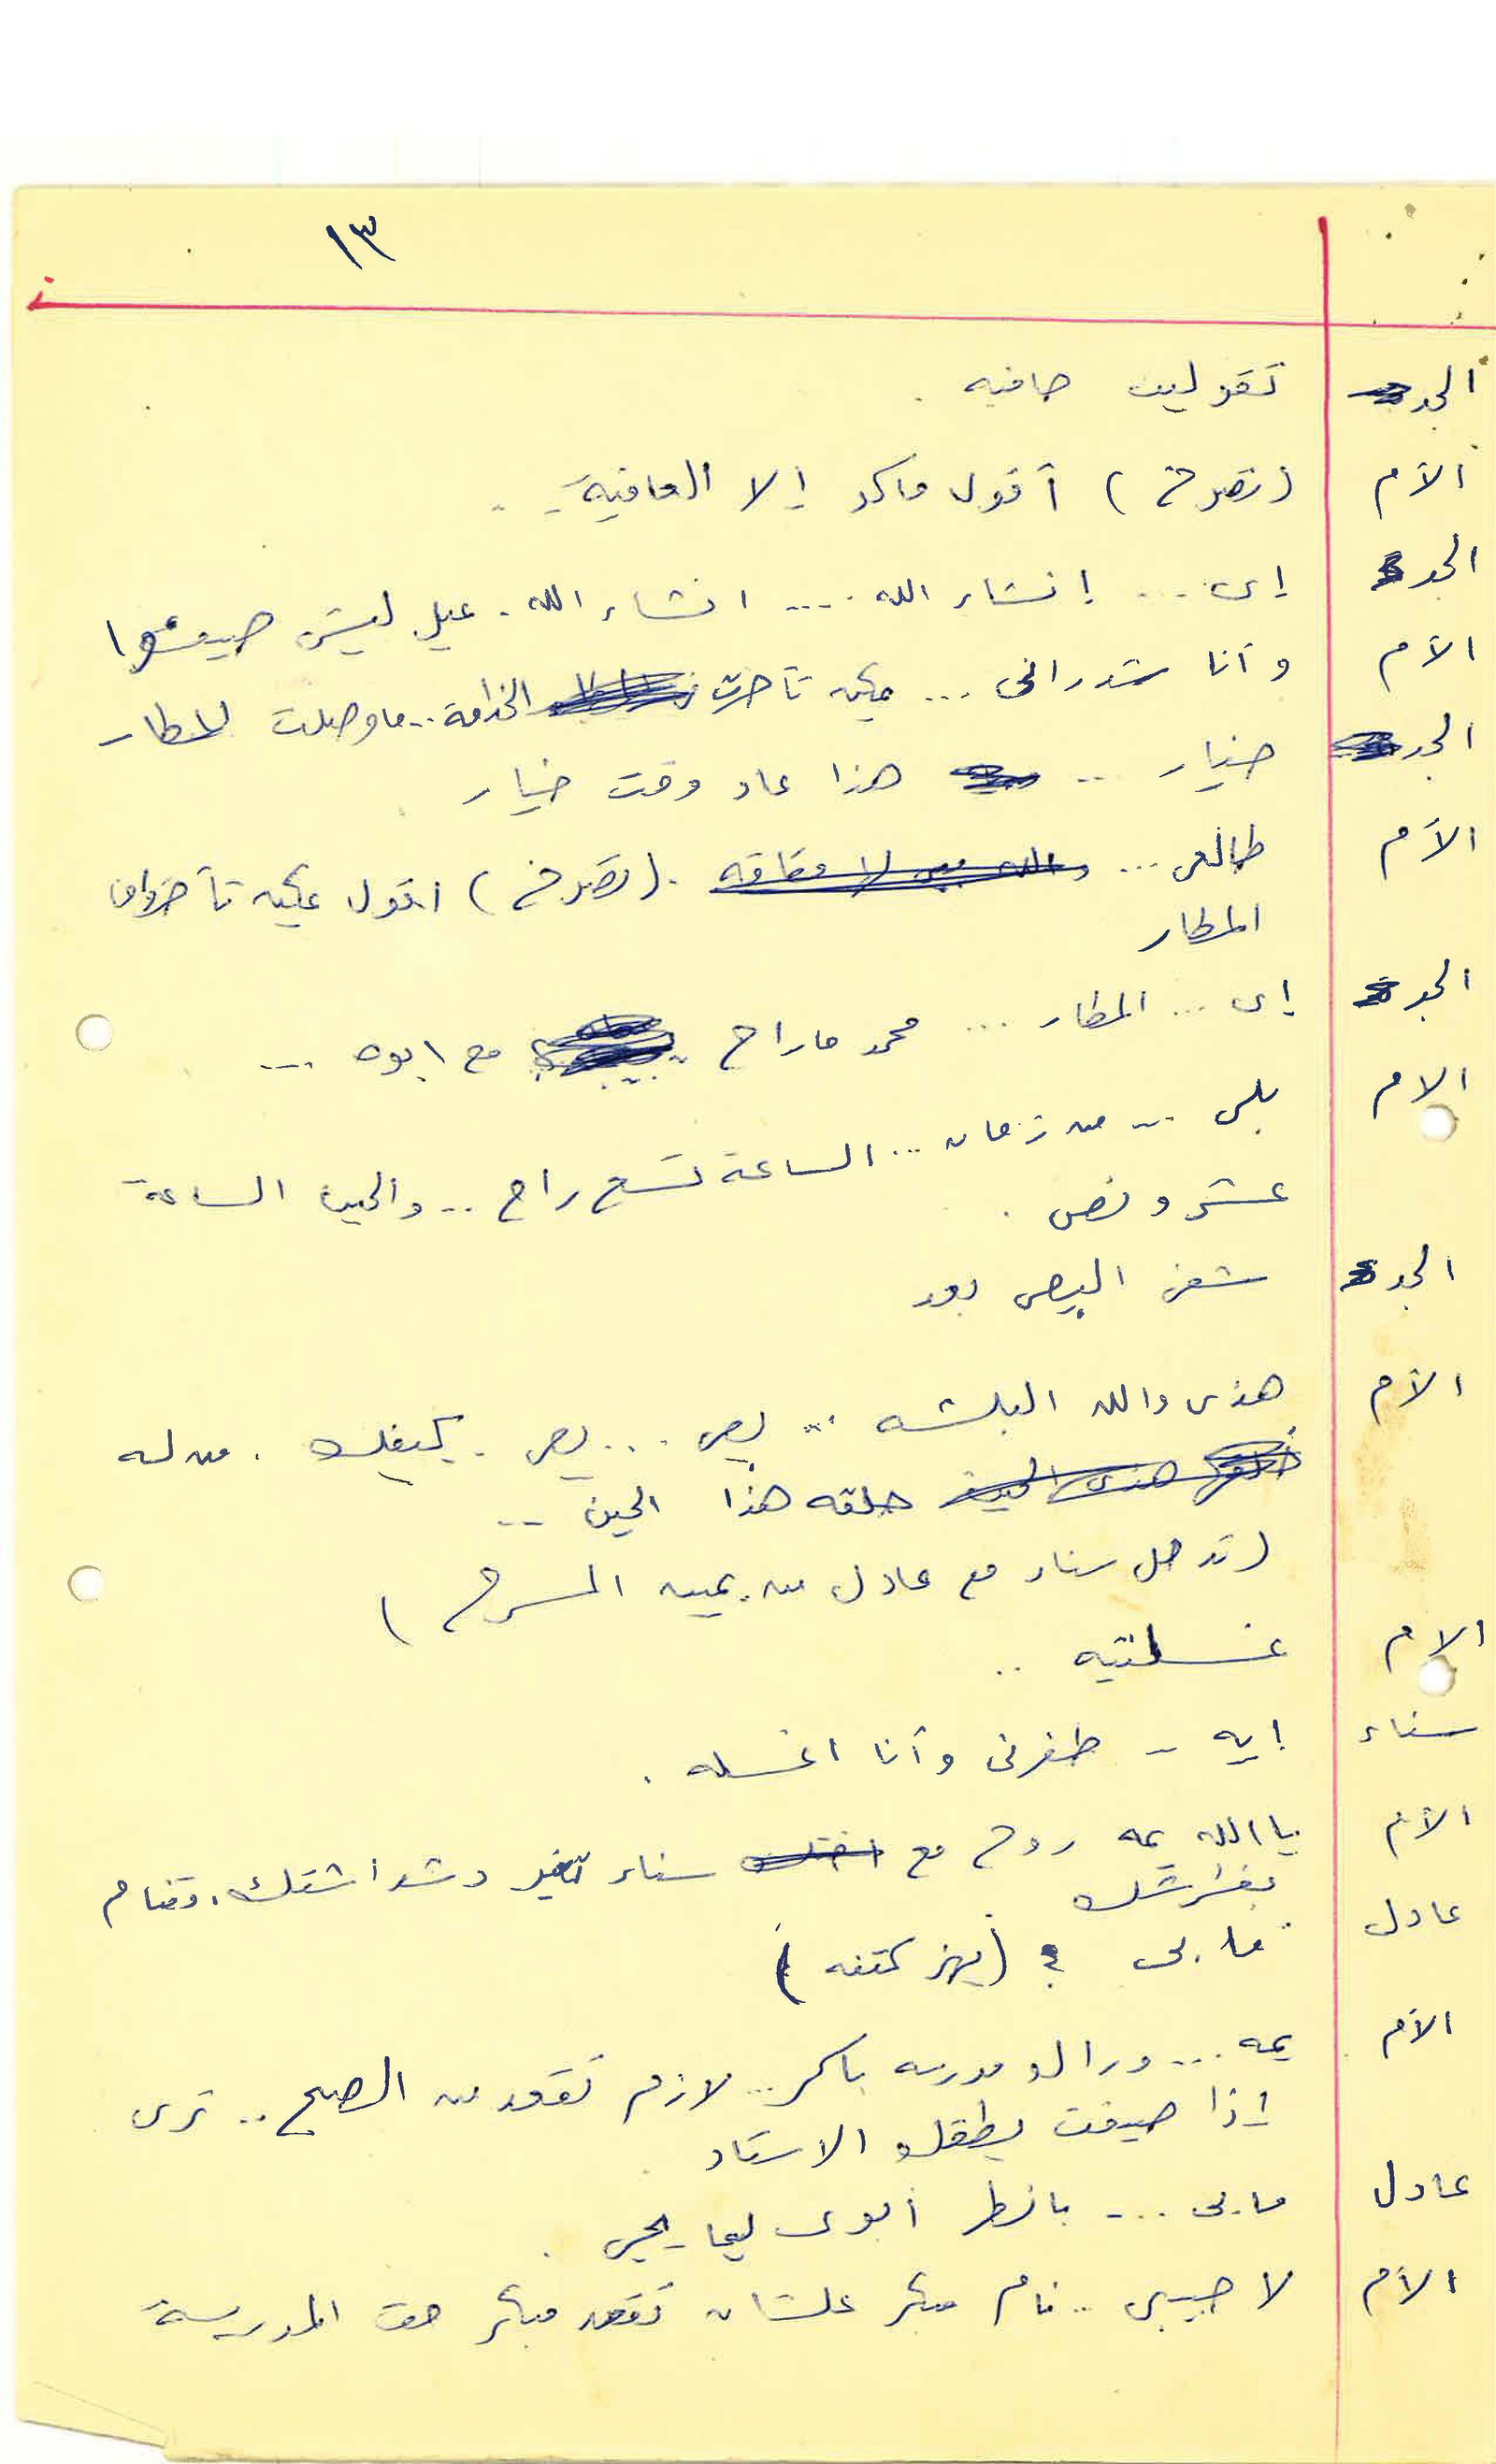 ١٣
الجد تقولين حافيه .
الأم (تصرخ) أقول ماكد إلا العافية ..
الجد إى ... إنشاء الله .... انشاء الله . عيل ليش
الأم وأنا شدرانى ... يمكن تأخرت الخدامة .. ماوصلت المطار
الجد خيار .. هذا عاد وقت خيار
الأم طالعى ... (تصرخ) اقول يمكن تأخروا فى
المطار
الجد إى ... المطار ... محمد ماراح مع ابوه ...
الام بلى ... من زمان ... الساعة تسع راح .. والحين الساعة
عشر ونص .
الجد شفى البيص بعد
الأم هذى والله البلشه ... بيص ... بيص . بكيفك . من له
خلقه هذا الحين ..
(تدخل سناء مع عادل من يمين المسرح)
الام غسلتيه ..
سناء إيه .. طفرنى وأنا اغسله .
الأم ياالله يمه روح مع سناء تغير دشداشتك . وتنام
بفرشك
عادل ما بى ؟ (يهز كتفه)
الأم يمه ... وراك مدرسه باكر .. لازم تقعد من الصبح .. ترى
إذا صيفت يطقك الاستاد
عادل مابى .... بانطر أبوى ليما يجى .
الأم لا حبيبى .. نام مبكر علشان تقعد مبكر حق المدرسة